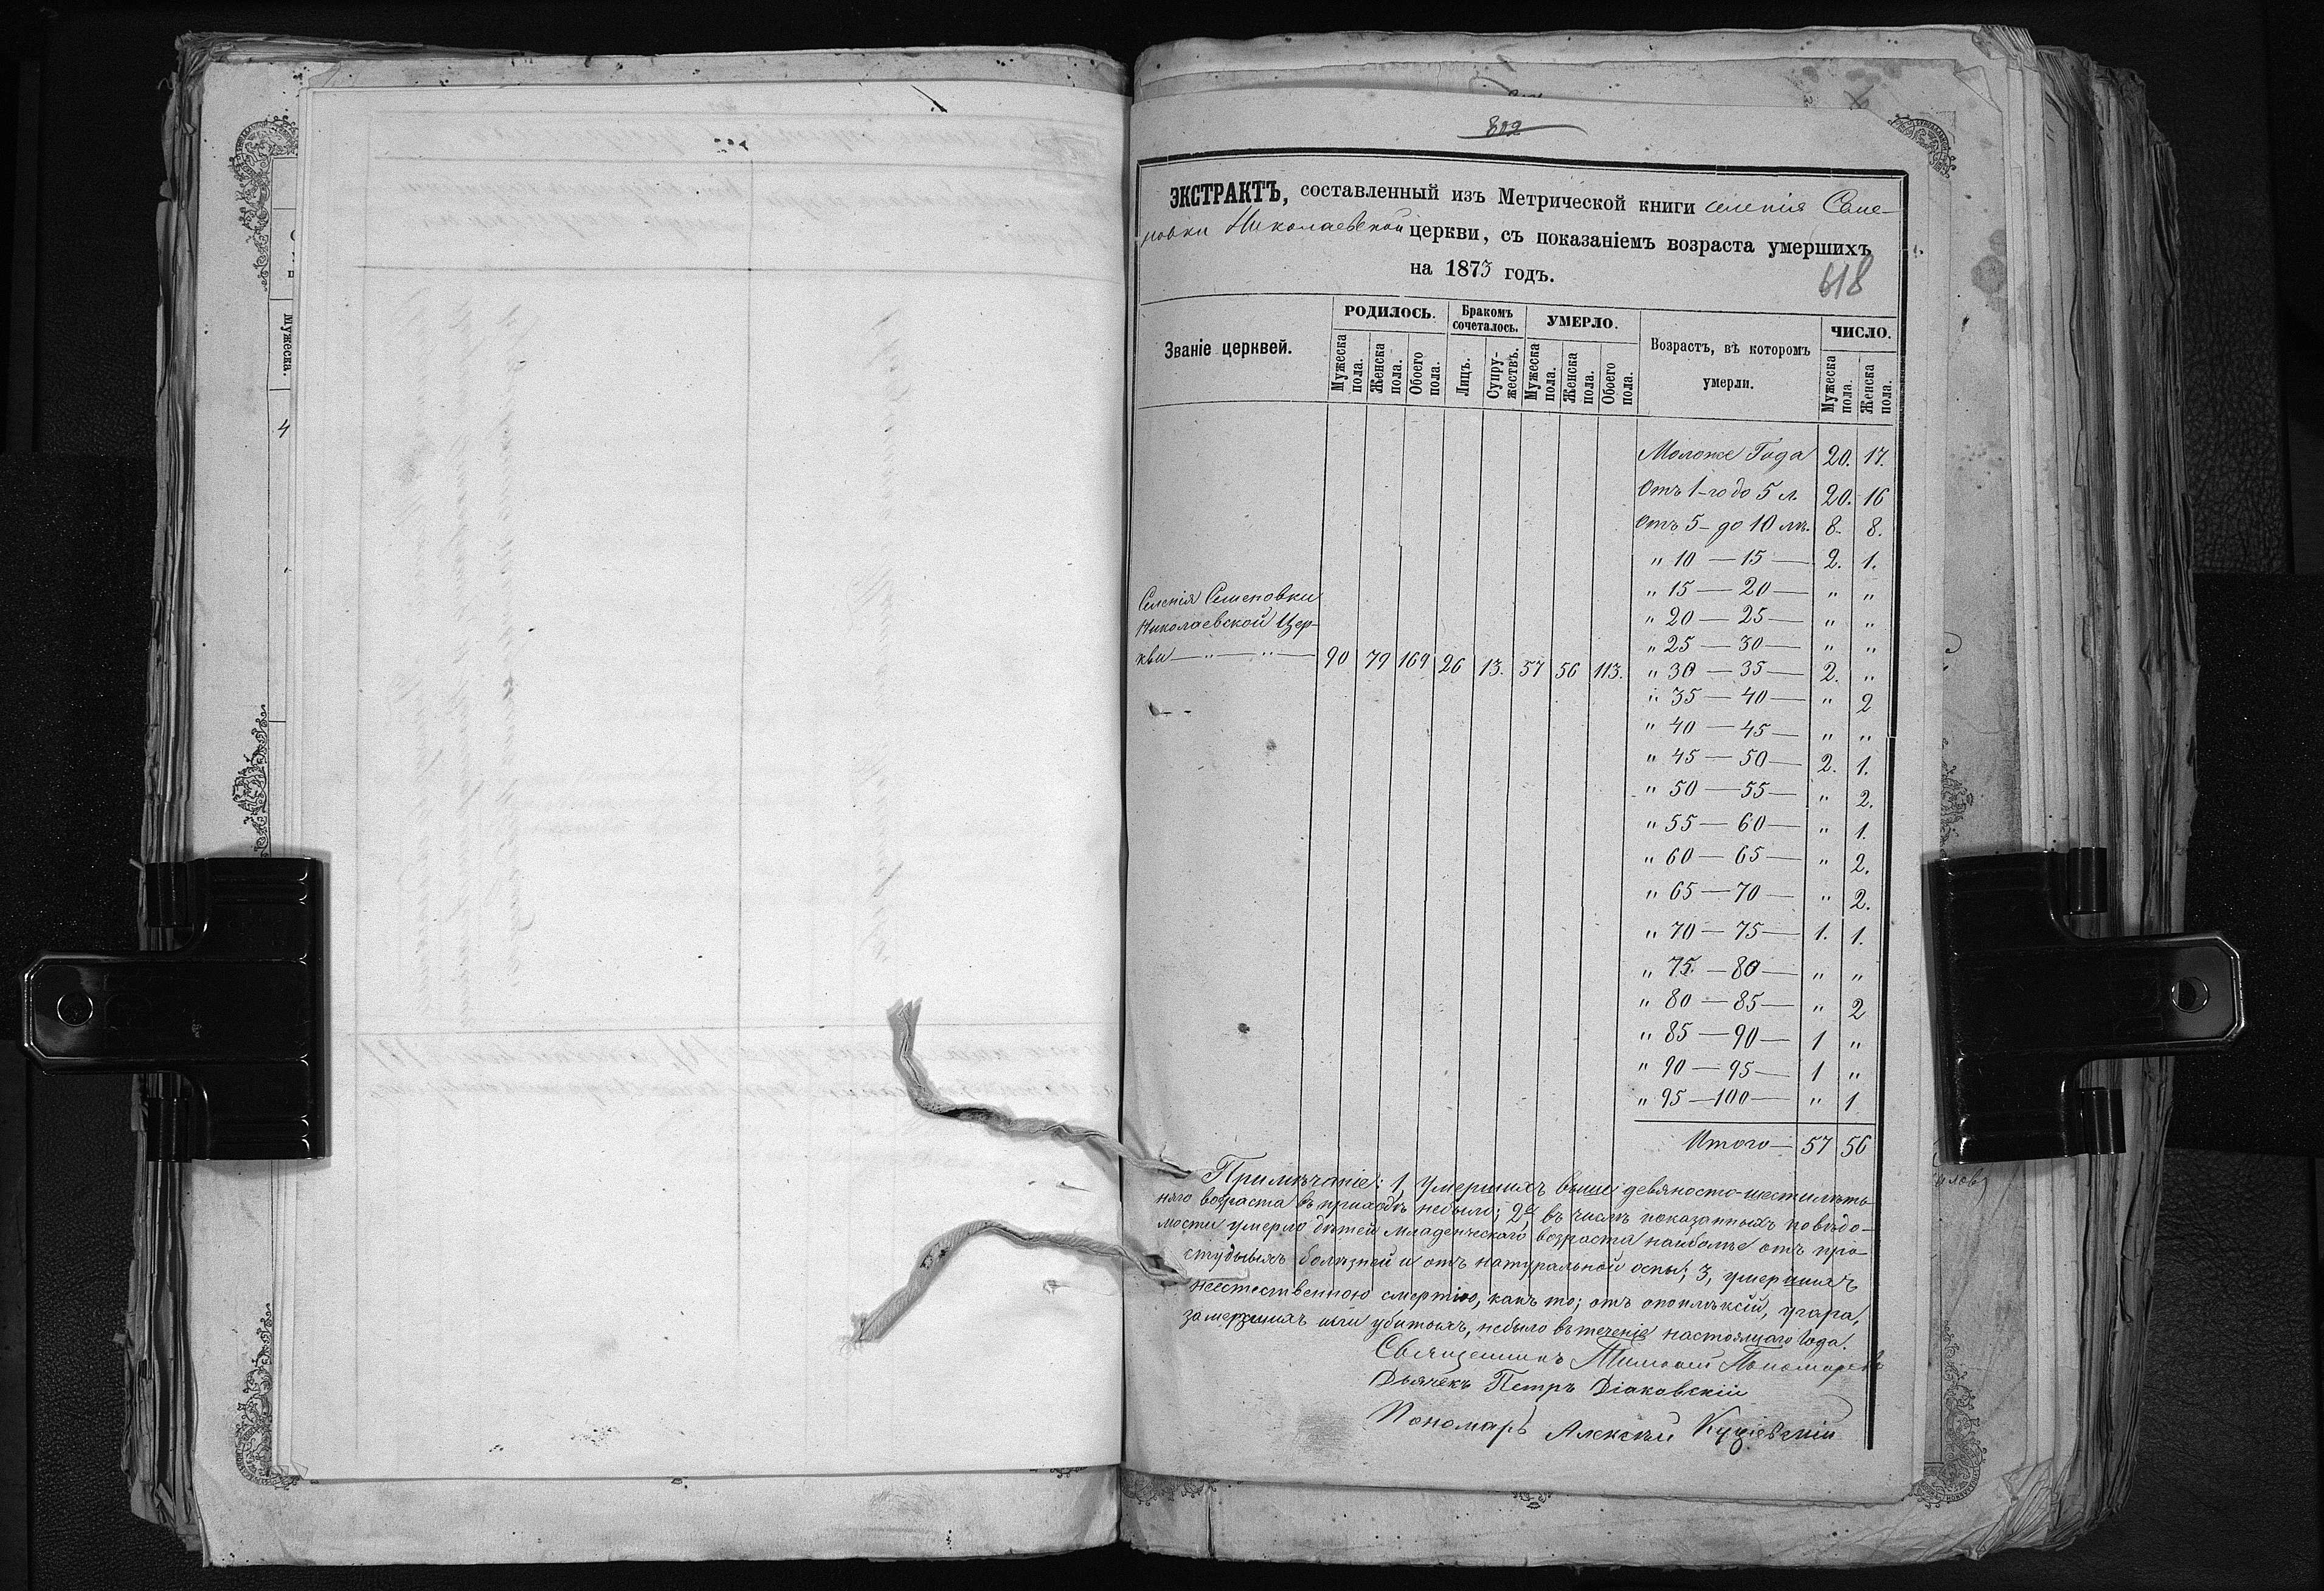 Мужеска.
4
302
ЭКСТРАКТЪ, составленный изъ Метрической книги селенія Семе-
новки Николаевской церкви, съ показаніемъ возраста умершихъ
на 1873 годъ.
618
Званіе церквей.
РОДИЛОСЬ.
Мужеска пола.
Женска пола.
Обоего пола.
Бракомъ сочеталось.
Лицъ.
Супружествъ.
УМЕРЛО.
Мужеска пола.
Женска пола.
Обоего пола.
Возрастъ, въ которомъ
умерли.
ЧИСЛО.
Мужеска пола.
Женска пола.
Моложе Года 20. 17.
Отъ 1-го до 5 л. 20. 16
Отъ 5 - до 10 лѣ. 8. 8.
" 10 — 15 — 2. 1.
" 15 — 20 — " "
" 20 — 25 — " "
" 25 — 30 — " "
" 30 — 35 — 2. "
" 35 — 40 — " 2
" 40 — 45 — " "
" 45 — 50 — 2. 1.
" 50 — 55 — " 2.
" 55 — 60 — " 1.
" 60 — 65 — " 2.
" 65 — 70 — " 2.
" 70 — 75 — 1. 1.
" 75 — 80 — " "
" 80 — 85 — " 2
" 85 — 90 — 1 "
" 90 — 95 — 1 "
" 95 — 100 — " 1
Итого — 57 56
Селенія Семеновки
Николаевской Цер-
кви — " — " — 90 79 169 26 13. 57 56 113.
Примѣчаніе: 1, Умершихъ выше девяносто-шестилѣть-
няго возраста въ приходѣ небыло; 2е, въ числѣ показанныхъ по вѣдо-
мости умерло дѣтей младенческаго возраста наиболѣе отъ про-
студныхъ болѣзней и отъ натуральной оспы; 3, умершихъ
неестественною смертію, какъ то; отъ апоплексіи, угара,
замерзшихъ или убитыхъ, небыло въ теченіе настоящаго Года.
Священникъ Тимофей Пономаревъ
Дьячекъ Петръ Діаковскій
Пономарь Алексѣй